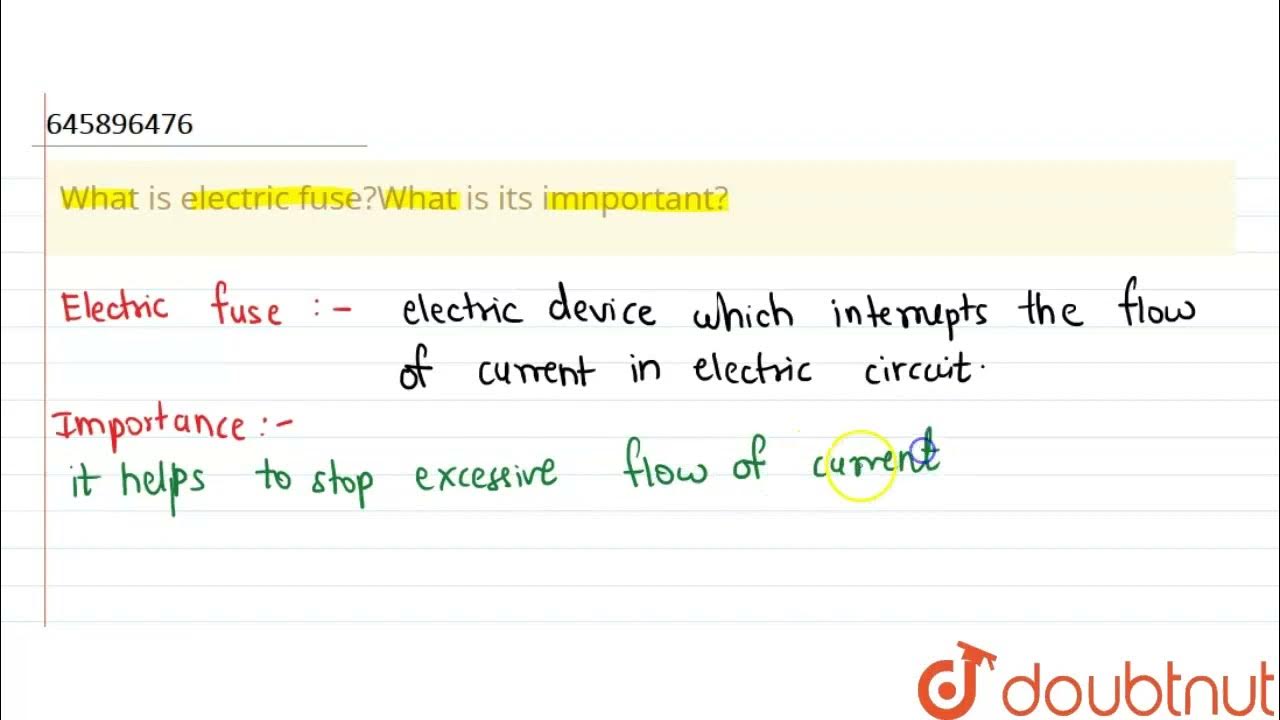 645896476
What is electric fuse?What is its imnportant?
Electric fuse :- electric device which interrupts the flow
of current in electric circuit.
Importance :-
it helps to stop excessive flow of current
doubtnut